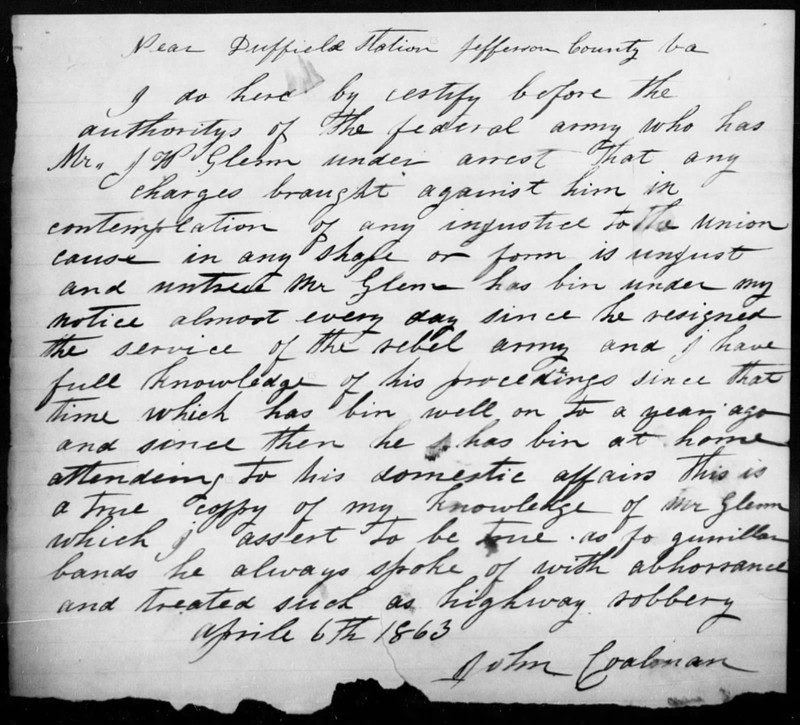 Near Duffield Station Jefferson County Va
I do here by certify before the
authoritys of the federal army who has
Mr. J W Glenn under arrest that any
charges braught against him in
contemplation of any injustice to the union
cause in any shape or form is unjust
and untrue Mr Glenn has bin under my
notice almost every day since he resigned
the service of the rebel army and I have
full knowledge of his procedings since that
time which has bin well on to a year ago
and since then he has bin at home
attending to his domestic affairs this is
a true coppy of my knowledge of Mr Glenn
which I assert to be true as to gurrillar
bands he always spoke of with abhorrance
and treated such as highway robbery
Aprile 6th 1863
John Coalman